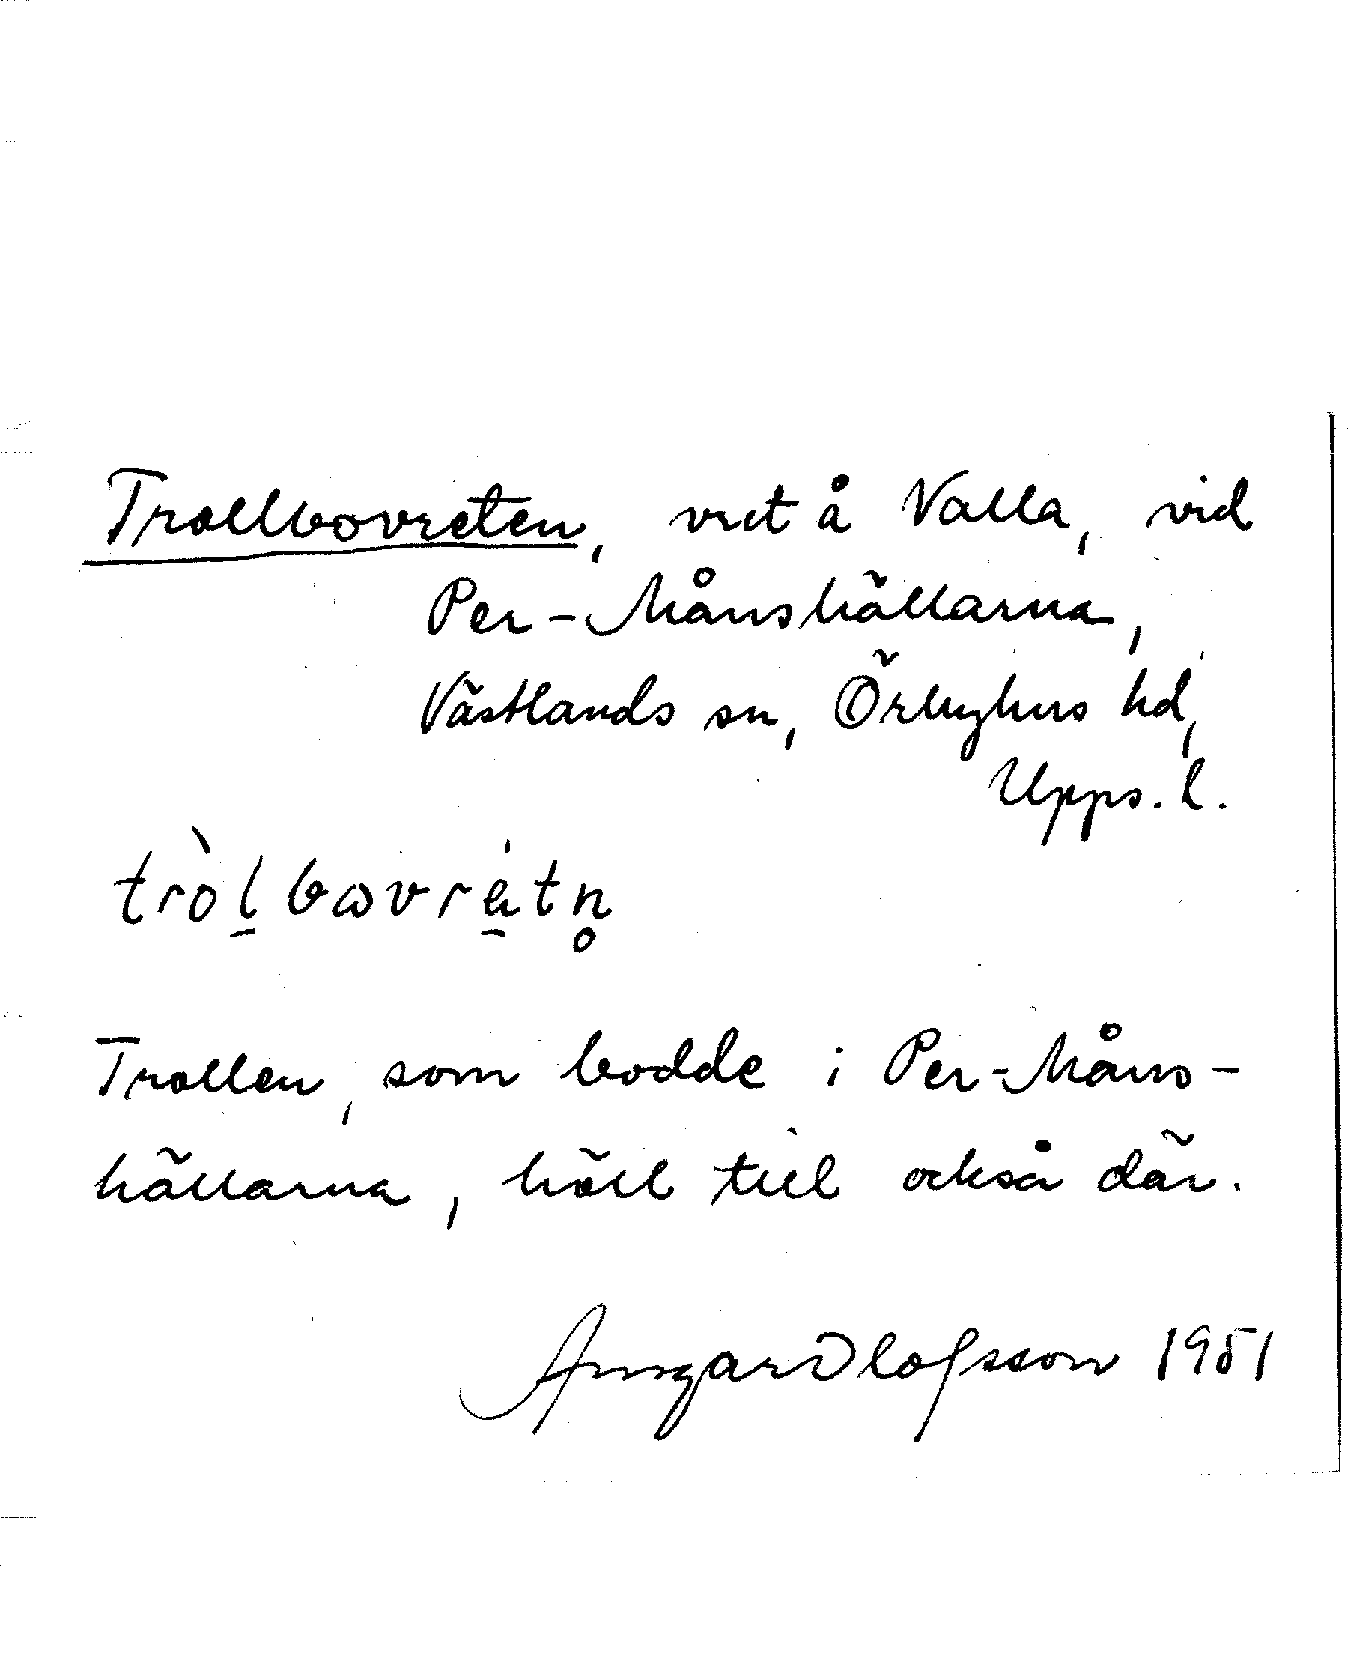 Trollbovreten, vret å Valla, vid
Per-Månshällarna,
Västlands sn, Örbyhus hd,
Upps. l.
tròl̠bωvrȧ̠tn̥
Trollen, som bodde i Per-Måns-
hällarna, höll till också där.
Ansgar Olofsson 1951